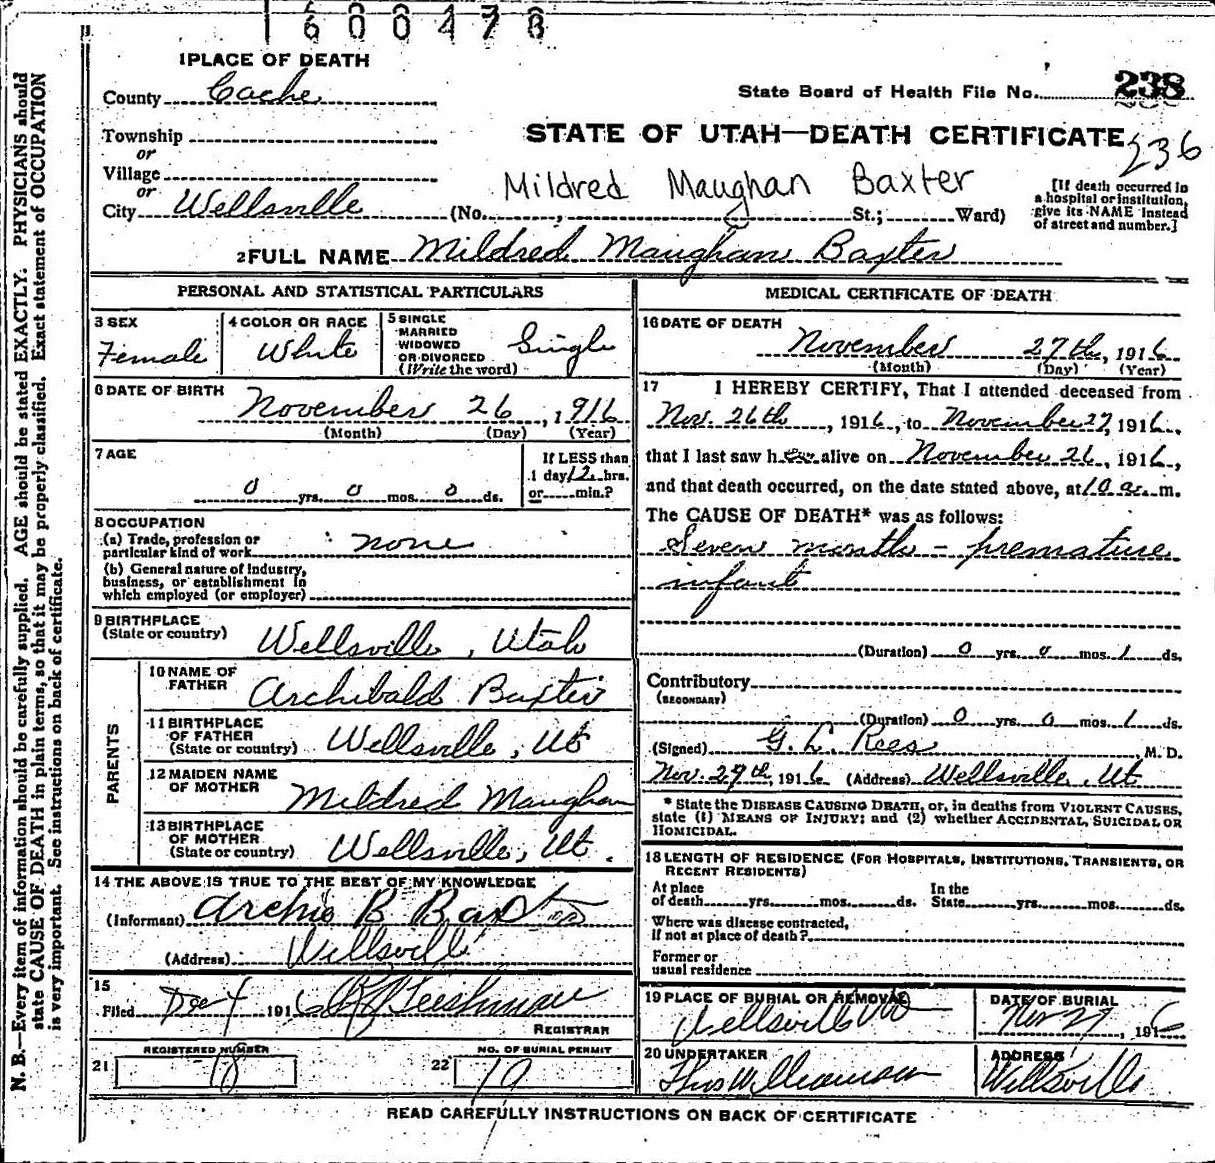 1600478
1 PLACE OF DEATH
County Cache
State Board of Health File No. 238
Township
STATE OF UTAH—DEATH CERTIFICATE
236
or
Village
or
Mildred Maughan Baxter
City Wellsville (No. , St.; Ward)
[If death occurred in
a hospital or institution,
give its NAME instead
of street and number.]
2 FULL NAME Mildred Maughan Baxter
PERSONAL AND STATISTICAL PARTICULARS
3 SEX
Female
4 COLOR OR RACE
White
5 SINGLE
MARRIED
WIDOWED
OR DIVORCED
(Write the word)
Single
6 DATE OF BIRTH
November 26, 1916
(Month) (Day) (Year)
7 AGE
0 yrs. 0 mos. 0 ds.
If LESS than
1 day 12 hrs.
or min.?
8 OCCUPATION
(a) Trade, profession or
particular kind of work none
(b) General nature of industry,
business, or establishment in
which employed (or employer)
9 BIRTHPLACE
(State or country) Wellsville, Utah
PARENTS
10 NAME OF
FATHER Archibald Baxter
11 BIRTHPLACE
OF FATHER
(State or country) Wellsville, Ut
12 MAIDEN NAME
OF MOTHER Mildred Maughan
13 BIRTHPLACE
OF MOTHER
(State or country) Wellsville, Ut.
14 THE ABOVE IS TRUE TO THE BEST OF MY KNOWLEDGE
(Informant) Archie B Baxter
(Address) Wellsville
15
Filed Dec 4 1916
REGISTRAR
21 REGISTERED NUMBER
18
22 NO. OF BURIAL PERMIT
19
MEDICAL CERTIFICATE OF DEATH
16 DATE OF DEATH
November 27th, 1916
(Month) (Day) (Year)
17 I HEREBY CERTIFY, That I attended deceased from
Nov. 26th, 1916, to November 27, 1916,
that I last saw her alive on November 26, 1916,
and that death occurred, on the date stated above, at 10 a.m.
The CAUSE OF DEATH* was as follows:
Seven months - premature
infant
(Duration) 0 yrs. 0 mos. 1 ds.
Contributory
(SECONDARY)
(Duration) 0 yrs. 0 mos. 1 ds.
(Signed) G. L. Rees, M. D.
Nov. 29th, 1916 (Address) Wellsville, Ut
* State the DISEASE CAUSING DEATH, or, in deaths from VIOLENT CAUSES,
state (1) MEANS OF INJURY; and (2) whether ACCIDENTAL, SUICIDAL OR
HOMICIDAL.
18 LENGTH OF RESIDENCE (FOR HOSPITALS, INSTITUTIONS, TRANSIENTS, OR
RECENT RESIDENTS)
At place
of death yrs. mos. ds.
In the
State yrs. mos. ds.
Where was disease contracted,
if not at place of death?
Former or
usual residence
19 PLACE OF BURIAL OR REMOVAL
Wellsville Ut
DATE OF BURIAL
Nov 27, 1916
20 UNDERTAKER
Thos Williamson
ADDRESS
Wellsville
READ CAREFULLY INSTRUCTIONS ON BACK OF CERTIFICATE
N. B.—Every item of information should be carefully supplied. AGE should be stated EXACTLY. PHYSICIANS should
state CAUSE OF DEATH in plain terms, so that it may be properly classified. Exact statement of OCCUPATION
is very important. See instructions on back of certificate.